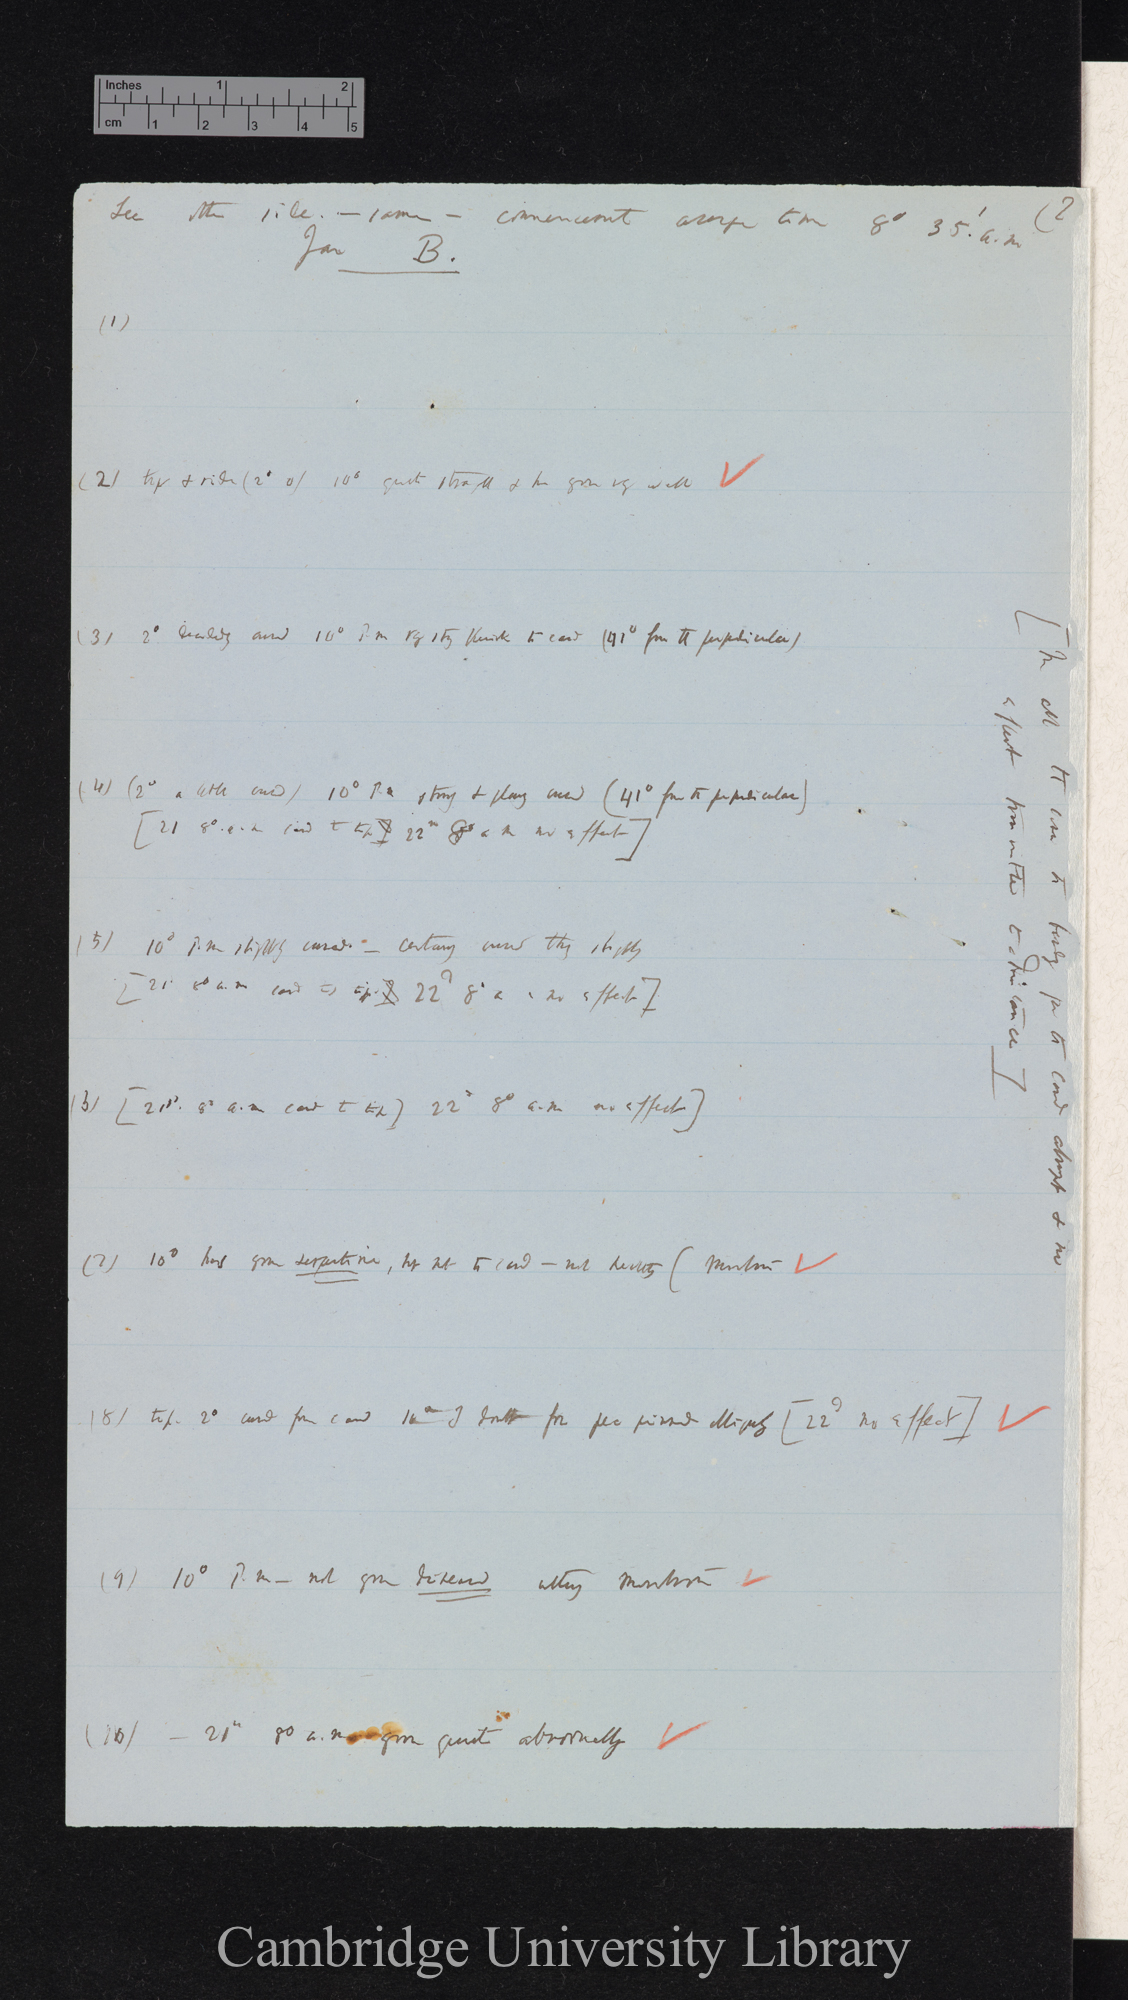 Inches 1 2
cm 1 2 3 4 5
(2
See other side. — same — commencement average time 8° 35' a.m
Jar B.
(1)
(2) tip & side (2° 0) 10° quite straight & has grown very well ✓
(3) 2° decidedly curved 10° P.m from the card (41° from the perpendicular)
(4) (2° a little curved) 10° P.m strong & plainly curved (41° from the perpendicular)
[21 8° a.m card to tip] 22 8° a m no effect]
(5) 10° P.m slightly curved — certainly curved slightly
[21 8° a.m card to tip] 22 8° a m no effect]
(6) [21st. 8° a.m card to tip] 22 8° a.m no effect]
(7) 10° has grown serpentine, but not to card — not (✓
(8) tip. 2° curved from card 10 I doubt for pea pinned obliquely [22 no effect] ✓
(9) 10° P.m — not grown diseased ✓
(10) — 21st 8° a.m grown quite abnormally ✓
[In all the card abrupt & no
effect transmitted to a distance]
Cambridge University Library